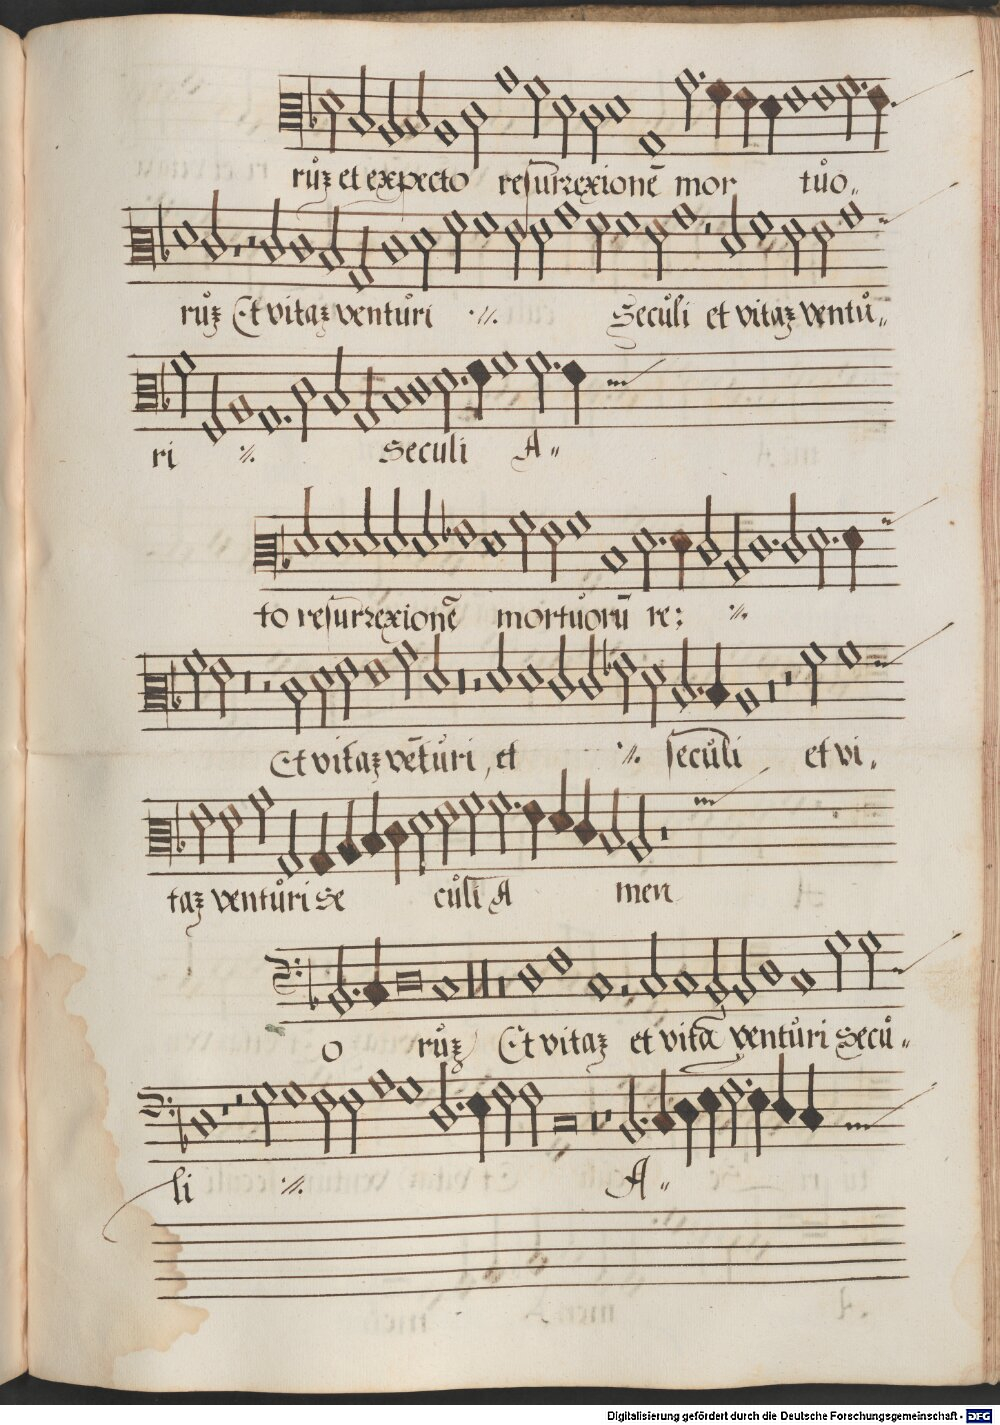 růꝫ et expecto resurrexionē mor tůo„
růꝫ Et vitaꝫ ventůri ·//. Seculi et vitaꝫ ventů„
ri ·//. Seculi A„
to resurrexionē mortůorū re; ·//.
Et vitaꝫ vētůri, et ·//. secůli et vi„
taꝫ ventůri se cůli A men
o růꝫ Et vitaꝫ et vitā ventůri Seců„
li ·//. A„
Digitalisierung gefördert durch die Deutsche Forschungsgemeinschaft - DFG